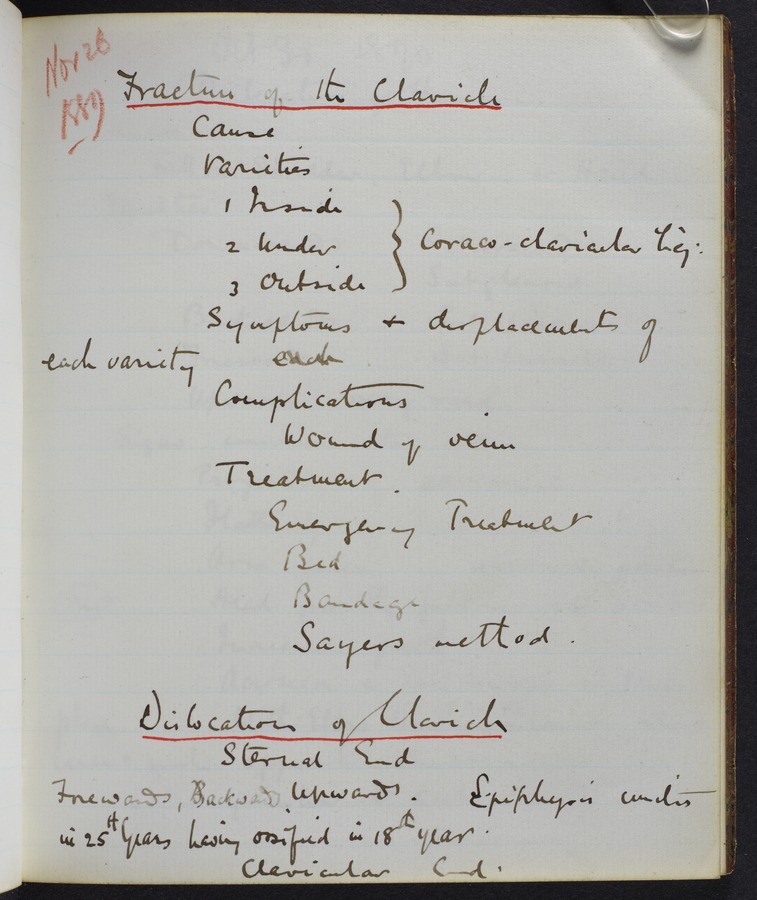 Nov 26
1889
Fracture of the Clavicle
Cause
Varieties
1 Inside
2 Under } Coraco-clavicular Lig:
3 Outside
Symptoms + displacements of
each variety each
Complications
Wound of vein
Treatment.
Emergency Treatment
Bed
Bandage
Sayers method.
Dislocation of Clavicle
Sternal End
Forewards, Backwards, Upwards. Epiphysis unites
in 25th Years having ossified in 18th year.
Clavicular End.